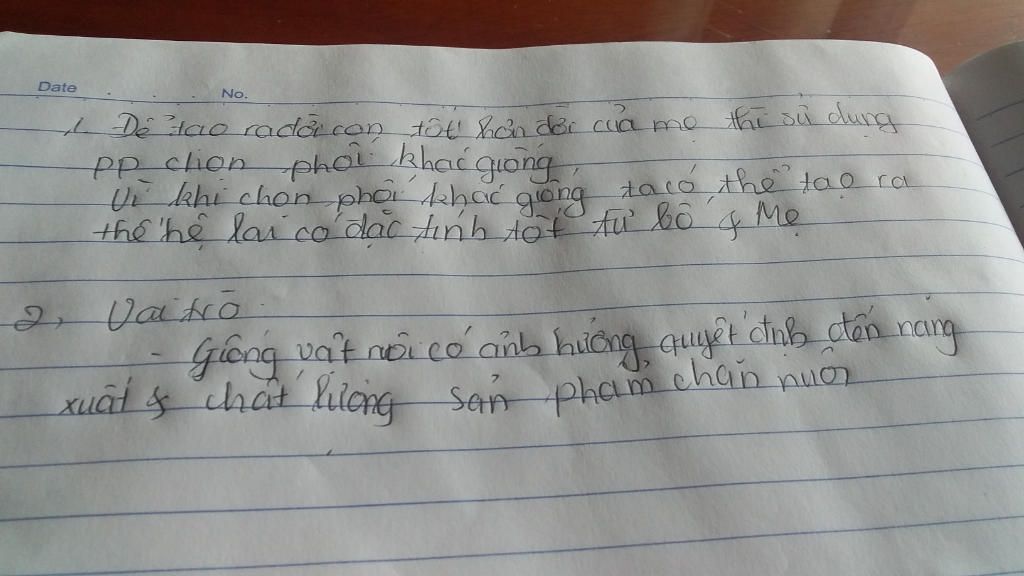 Date . . . No.
1. Để tạo ra đời con tốt hơn đời của mẹ thì sử dụng
pp chọn phối khác giống
Vì khi chọn phối khác giống ta có thể tạo ra
thế hệ lai có đặc tính tốt từ bố & Mẹ
2, Vai trò
- Giống vật nuôi có ảnh hưởng quyết định đến năng
xuất & chất lượng sản phẩm chăn nuôi